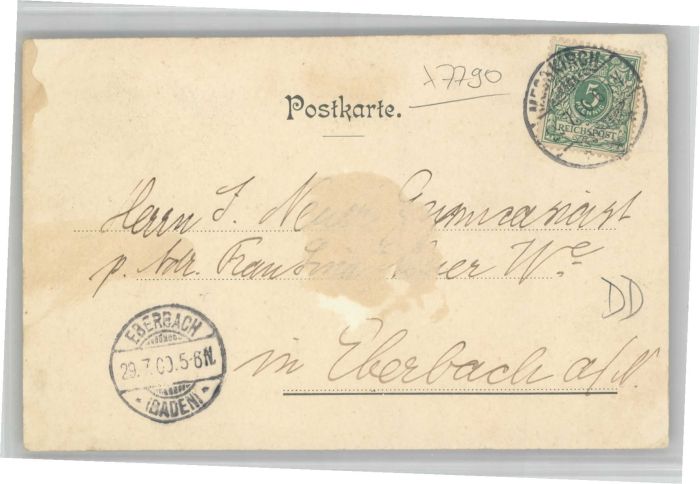 x7790
Postkarte.
MESSKIRCH
5
REICHSPOST
Herrn J. Gymnasiast
p. Adr. Frau We
DD
EBERBACH
29.7.00.5-6N.
* (BADEN) *
in Eberbach a/N.